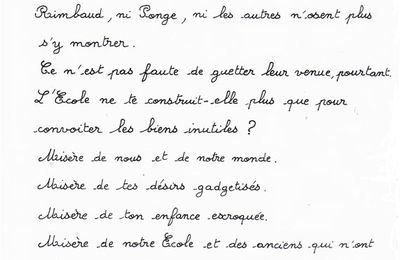 Rimbaud, ni Ponge, ni les autres n'osent plus
s'y montrer.
Ce n'est pas faute de guetter leur venue, pourtant.
L'Ecole ne te construit-elle plus que pour
convoiter les biens inutiles ?
Misère de nous et de notre monde.
Misère de tes désirs gadgetisés.
Misère de ton enfance escroquée.
Misère de notre École et des anciens qui n'ont